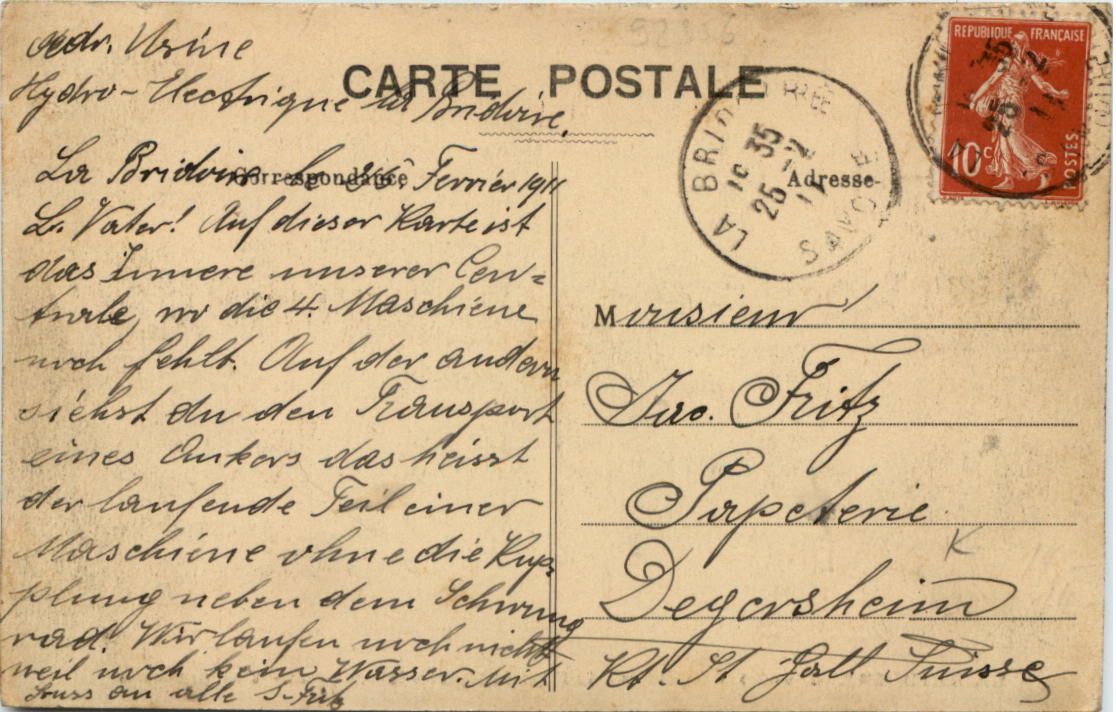 Adr. Usine
Hydro-Electrique la Bridoire.
CARTE POSTALE
Correspondance
Adresse
La Bridoire Ferrier 1911
L. Vater! Auf dieser Karte ist
das Innere unserer Cen=
trale, wo die 4. Maschiene
noch fehlt. Auf der andern
siehst du den Transport
eines Ankers das heisst
der laufende Teil einer
Maschiene ohne die Kup=
plung neben dem Schwung
rad. Wir laufen noch nicht
weil noch kein Wasser. Mit
Gruss an alle S. Fritz
Monsieur
Jac. Fritz
Papeterie
Degersheim
Kt. St. Gall Suisse
K
LA BRIDOIRE
16 35
25 2
11
SAVOIE
REPUBLIQUE FRANÇAISE
10c
POSTES